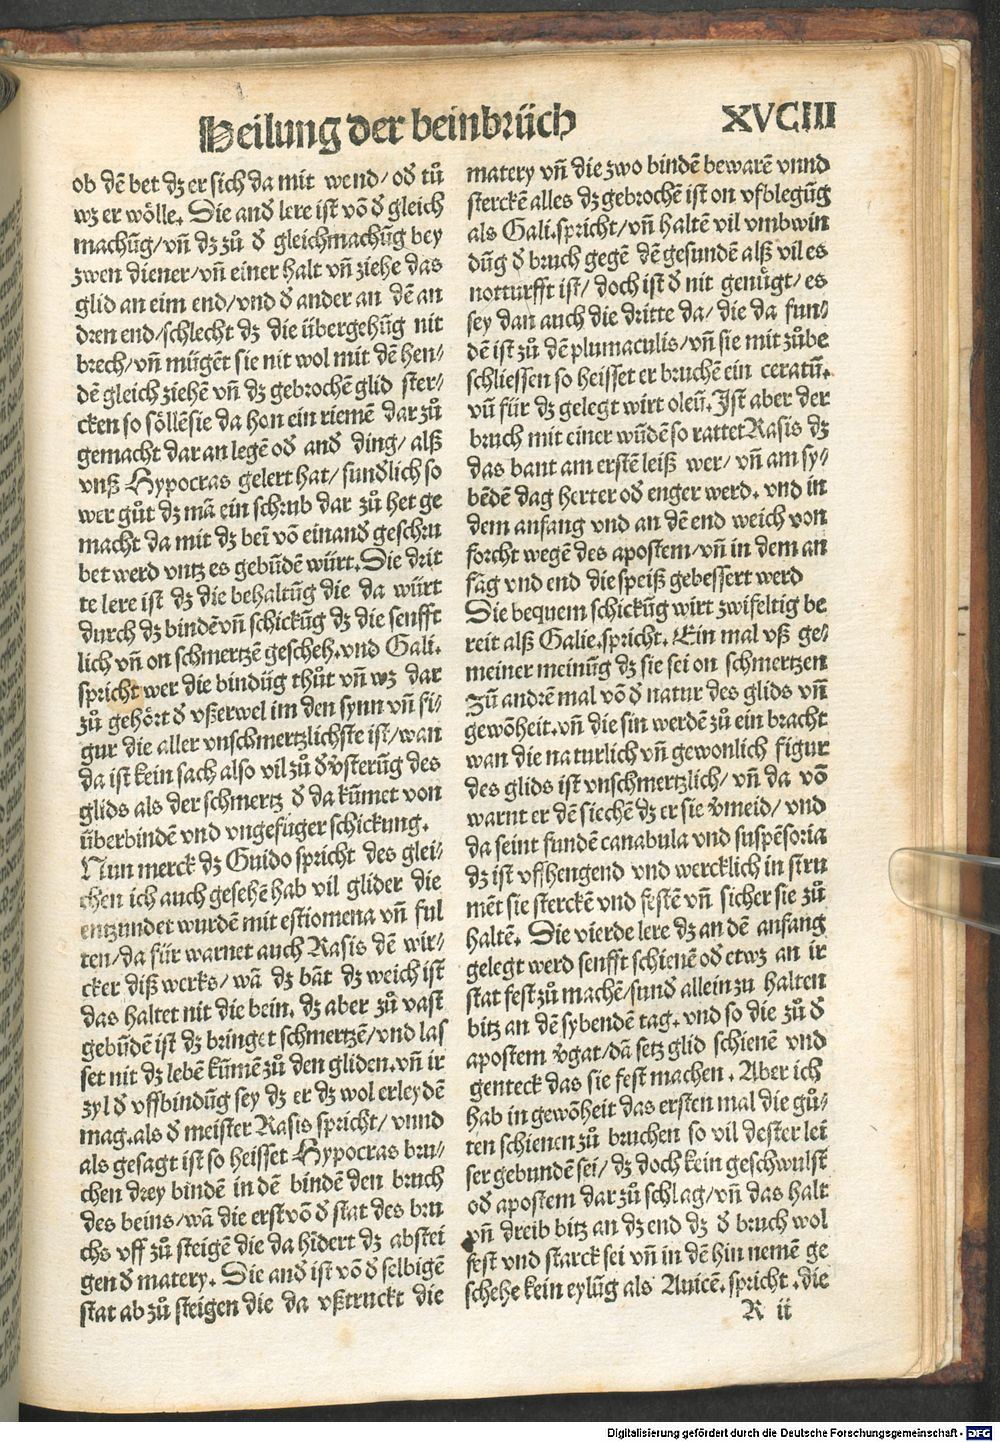 Heilung der beinbrüch
XVCIII
ob dē bet dz er sich da mit wend/ od̄ tů
wz er wölle. Die and̄ lere ist vō d̄ gleich
machūg/ vn̄ dz zů d̄ gleichmachūg bey
zwen diener/ vn̄ einer halt vn̄ ziehe das
glid an eim end/ vnd d̄ ander an dē an
dren end/ schlecht dz die übergehūg nit
brech/ vn̄ mügēt sie nit wol mit dē hen/
dē gleich ziehē vn̄ dz gebrochē glid ster/
cken so söllē sie da hon ein riemē dar zů
gemacht dar an legē od̄ and̄ ding/ alß
vnß Hypocras gelert hat/ sund̄lich so
wer gůt dz mā ein schrub dar zů het ge
macht da mit dz bei vō einand̄ geschru
bet werd vntz es gebūdē würt. Die drit
te lere ist dz die behaltūg die da würt
durch dz bindē vn̄ schickūg dz die senfft
lich vn̄ on schmertzē gescheh. vnd Gali.
spricht wer die bindūg thůt vn̄ wz dar
zů gehört d̄ vßerwel im den synn vn̄ fi/
gur die aller vnschmertzlichste ist/ wan
da ist kein sach also vil zů d̄ v̄sterūg des
glids als der schmertz d̄ da kūmet von
überbindē vnd vngefüger schickung.
Nun merck dz Guido spricht des glei/
chen ich auch gesehē hab vil glider die
entzundet wurdē mit estiomena vn̄ ful
ten/ da für warnet auch Rasis dē wir/
cker diß werks/ wā dz bāt dz weich ist
das haltet nit die bein. dz aber zů vast
gebūdē ist dz bringet schmertzē/ vnd las
set nit dz lebē kūmē zů den gliden. vn̄ ir
zyl d̄ vffbindūg sey dz er dz wol erleydē
mag. als d̄ meister Rasis spricht/ vnnd
als gesagt ist so heisset Hypocras bru/
chen drey bindē in dē bindē den bruch
des beins/ wā die erst vō d̄ stat des bru
chs vff zů steigē die da hīdert dz abstei
gen d̄ matery. Die and̄ ist vō d̄ selbigē
stat ab zů steigen die da vßtruckt die
matery vn̄ die zwo bindē bewarē vnnd
sterckē alles dz gebrochē ist on vfblegūg
als Gali. spricht/ vn̄ haltē vil vmbwin
dūg d̄ bruch gegē dē gesundē alß vil es
notturfft ist/ doch ist d̄ nit genügt/ es
sey dan auch die dritte da/ die da fun/
dē ist zů dē plumaculis/ vn̄ sie mit zůbe
schliessen so heisset er bruchē ein ceratū.
vn̄ für dz gelegt wirt oleū. Ist aber der
bruch mit einer wūdē so rattet Rasis dz
das bant am erstē leiß wer/ vn̄ am sy/
bēdē dag herter od̄ enger werd. vnd in
dem anfang vnd an dē end weich von
forcht wegē des apostem/ vn̄ in dem an
fāg vnd end die speiß gebessert werd
Die bequem schickūg wirt zwifeltig be
reit alß Galie. spricht. Ein mal vß ge/
meiner meinūg dz sie sei on schmertzen
Zū andrē mal vō d̄ natur des glids vn̄
gewōheit. vn̄ die sin werdē zů ein bracht
wan die naturlich vn̄ gewonlich figur
des glids ist vnschmertzlich/ vn̄ da vō
warnt er dē siechē dz er sie v̄meid/ vnd
da seint fundē canabula vnd suspēsoria
dz ist vffhengend vnd wercklich in stru
mēt sie sterckē vnd festē vn̄ sicher sie zů
haltē. Die vierde lere dz an dē anfang
gelegt werd senfft schienē od̄ etwz an ir
stat fest zů machē/ sund̄ allein zu halten
bitz an dē sybendē tag. vnd so die zů d̄
apostem v̄gat/ dā setz glid schienē vnd
genteck das sie fest machen. Aber ich
hab in gewōheit das ersten mal die gů/
ten schienen zů bruchen so vil dester lei
ser gebundē sei/ dz doch kein geschwulst
od̄ apostem dar zů schlag/ vn̄ das halt
vn̄ dreib bitz an dz end dz d̄ bruch wol
fest vnd starck sei vn̄ in dē hin nemē ge
schehe kein eylūg als Auicē. spricht. die
R ii
Digitalisierung gefördert durch die Deutsche Forschungsgemeinschaft - DFG